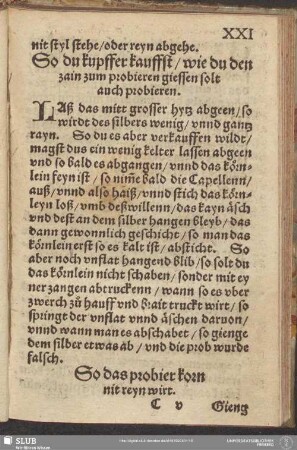 XXI
nit styl stehe/oder reyn abgehe.
So du kupffer kauffst/wie du den
zain zum probieren giessen solt
auch probieren.
Laß das mitt grosser hytz abgeen/so
wirdt des silbers wenig/vnnd gantz
rayn. So du es aber verkauffen wildt/
magst dus ein wenig kelter lassen abgeen
vnd so bald es abgangen/vnnd das körn-
lein feyn ist/so nim̃e bald die Capellenn/
auß/vnnd also haiß/vnnd stich das körn-
leyn loß/vmb deßwillenn/das kayn äsch
vnd dest an dem silber hangen bleyb/das
dann gewonnlich geschicht/so man das
körnlein erst so es kalt ist/absticht. So
aber noch vnflat hangend blib/so solt du
das körnlein nicht schaben/sonder mit ey
ner zangen abtruckenn/wann so es vber
zwerch zů hauff vnd brait truckt wirt/so
springt der vnflat vnnd äschen daruon/
vnnd wann man es abschabet/so gienge
dem silber etwas ab/vnd die prob wurde
falsch.
So das probier korn
nit reyn wirt.
C v Gieng
SLUB
Wir führen Wissen.
UNIVERSITÄTSBIBLIOTHEK
FREIBERG